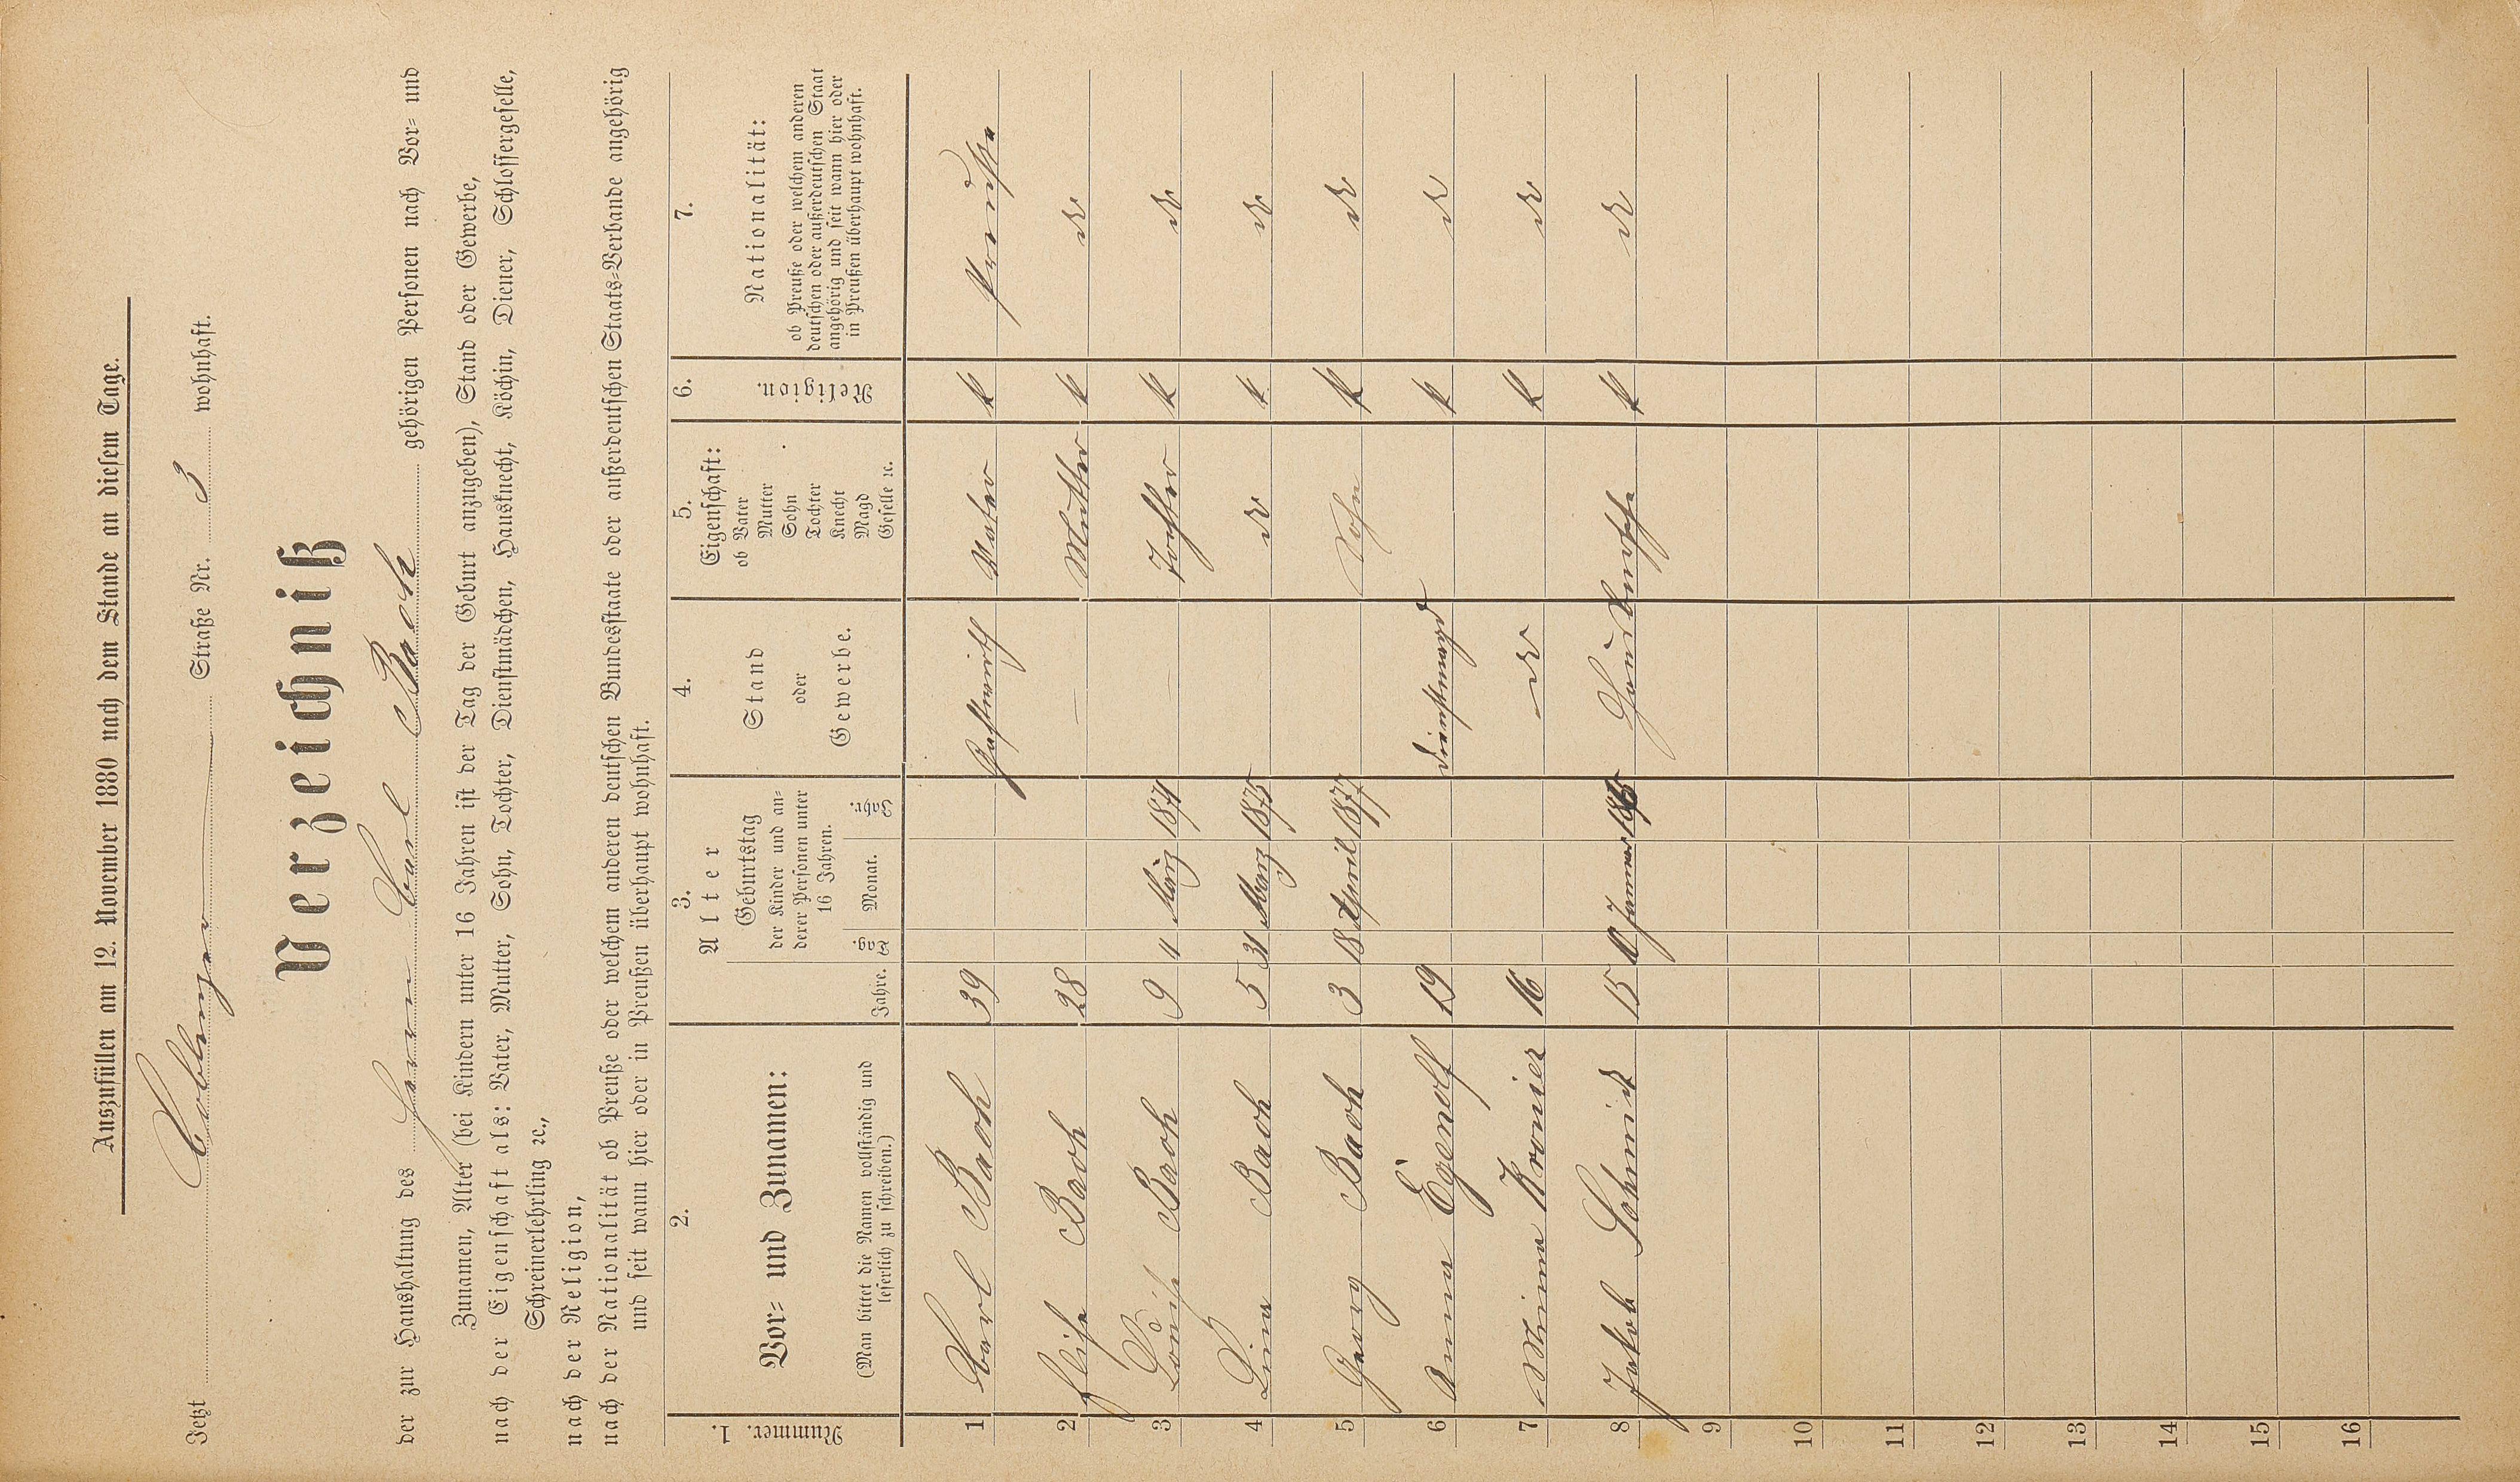 Auszufüllen am 12. November 1880 nach dem Stande an diesem Tage.
Jetzt Coblenzer Straße Nr. 3 wohnhaft.
Verzeichniß
der zur Haushaltung des Herrn Carl Bach gehörigen Personen nach Vor- und
Zunamen, Alter (bei Kindern unter 16 Jahren ist der Tag der Geburt anzugeben), Stand oder Gewerbe,
nach der Eigenschaft als: Vater, Mutter, Sohn, Tochter, Dienstmädchen, Hausknecht, Köchin, Diener, Schlossergeselle,
Schreinerlehrling ꝛc.,
nach der Religion,
nach der Nationalität ob Preuße oder welchem anderen deutschen Bundesstaate oder außerdeutschen Staats-Verbande angehörig
und seit wann hier oder in Preußen überhaupt wohnhaft.
1. 2. 3. 4. 5. 6. 7.
Nummer.
Vor- und Zunamen:
(Man bittet die Namen vollständig und
leserlich zu schreiben.)
Alter
Jahre.
Geburtstag
der Kinder und an-
derer Personen unter
16 Jahren.
Tag. Monat. Jahr.
Stand
oder
Gewerbe.
Eigenschaft:
ob Vater
Mutter
Sohn
Tochter
Knecht
Magd
Geselle ꝛc.
Religion.
Nationalität:
ob Preuße oder welchem anderen
deutschen oder außerdeutschen Staat
angehörig und seit wann hier oder
in Preußen überhaupt wohnhaft.
1 Carl Bach 39 Gastwirth Vater k Preuße
2 Elise Bach 28 — Mutter k do
3 Louise Bach 9 11 März 1871 — Tochter k do
4 Lina Bach 5 31 März 1875 do k do
5 Georg Bach 3 18 April 1877 Sohn k do
6 Anna Egenolf 19 Dienstmagd k do
7 Minna Kronier 16 do k do
8 Jakob Schmidt 15 Januar 1865 Hausbursche k do
9
10
11
12
13
14
15
16